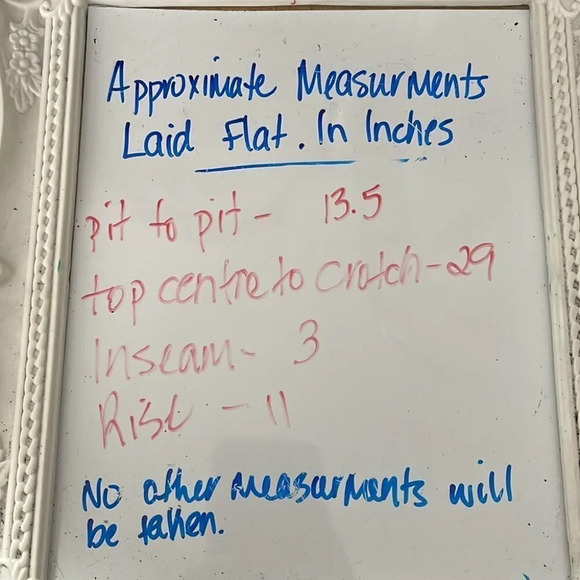 Approximate Measurments
Laid Flat. In Inches
pit to pit - 13.5
top centre to crotch - 29
Inseam - 3
Rise - 11
No other measurments will
be taken.